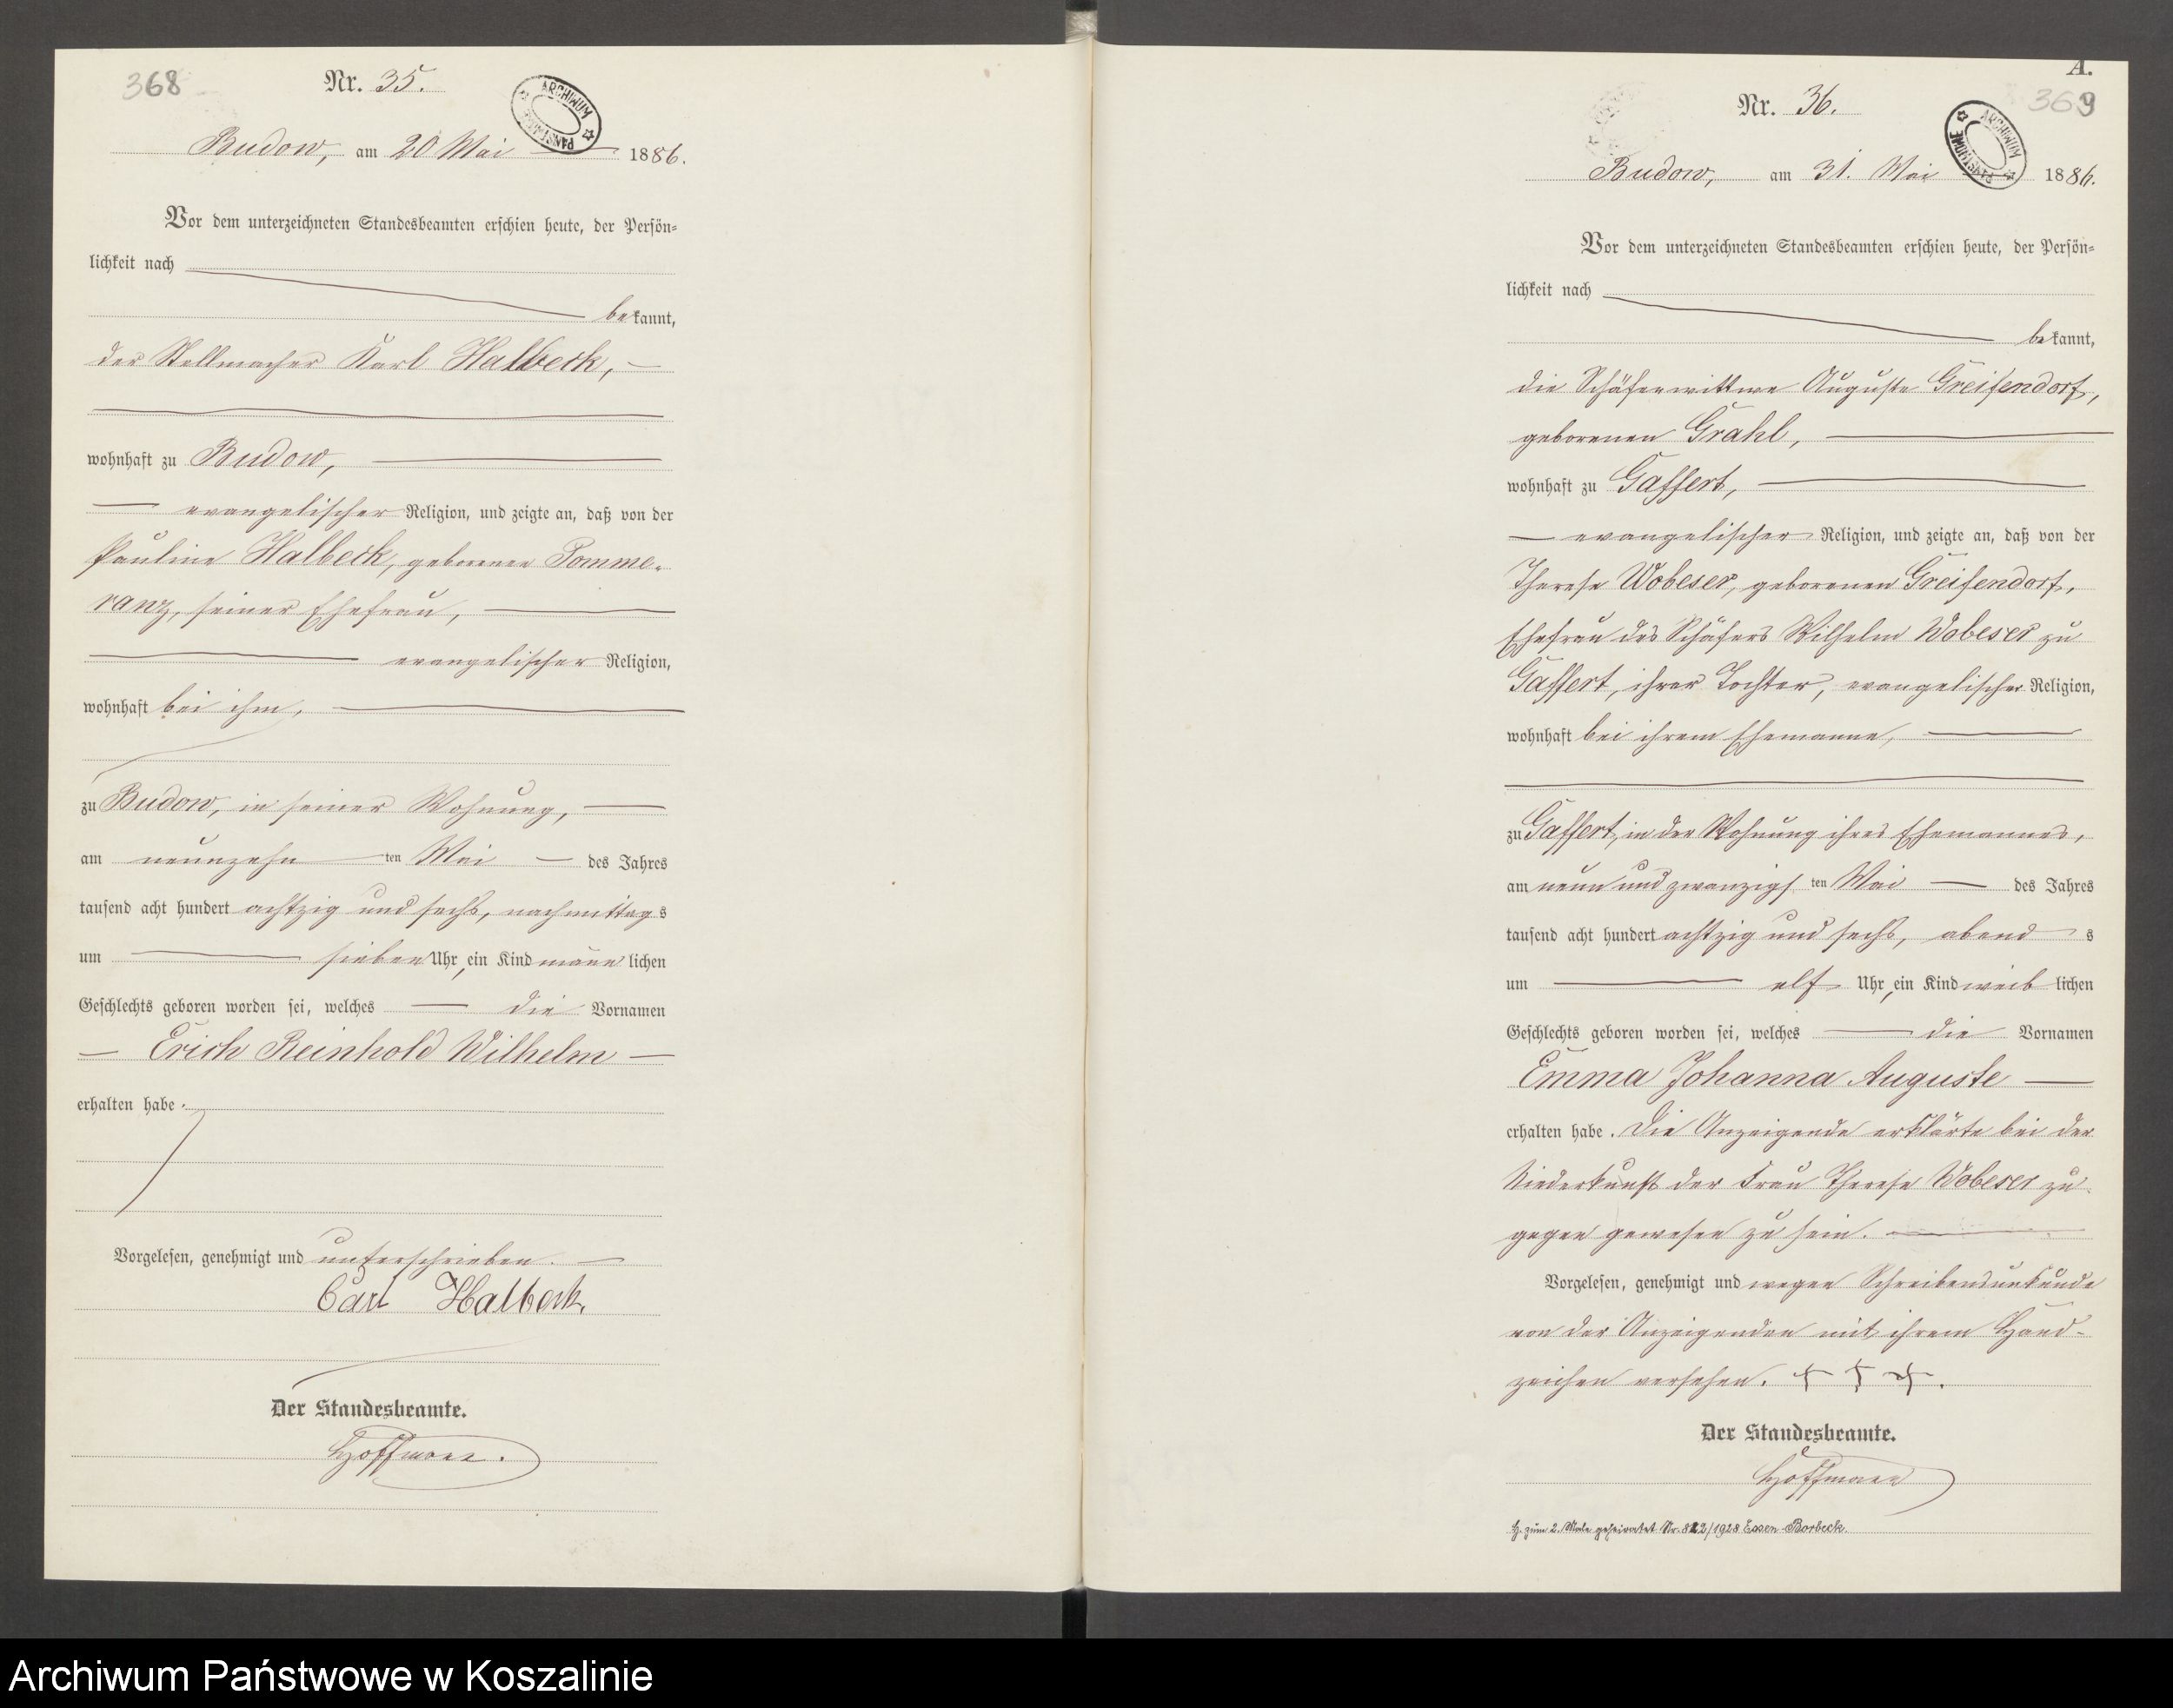 368
Nr. 35.
ARCHIWUM PAŃSTWOWE
Budow, am 20 Mai 1886.
Vor dem unterzeichneten Standesbeamten erschien heute, der Persön=
lichkeit nach
bekannt,
der Stellmacher Karl Halbeck,
wohnhaft zu Budow,
evangelischer Religion, und zeigte an, daß von der
Pauline Halbeck, geborenen Pomme-
ranz, seiner Ehefrau,
evangelischer Religion,
wohnhaft bei ihm,
zu Budow, in seiner Wohnung,
am neunzehn ten Mai des Jahres
tausend acht hundert achtzig und sechs, nachmittags
um sieben Uhr, ein Kind männlichen
Geschlechts geboren worden sei, welches die Vornamen
Erich Reinhold Wilhelm
erhalten habe.
Vorgelesen, genehmigt und unterschrieben.
Carl Halbeck.
Der Standesbeamte.
Hoffmann.
A.
369
Nr. 36.
ARCHIWUM PAŃSTWOWE
Budow, am 31. Mai 1886.
Vor dem unterzeichneten Standesbeamten erschien heute, der Persön=
lichkeit nach
bekannt,
die Schäferwittwe Auguste Greifendorf,
geborenen Grahl,
wohnhaft zu Gaffert,
evangelischer Religion, und zeigte an, daß von der
Therese Wobeser, geborenen Greifendorf,
Ehefrau des Schäfers Wilhelm Wobeser zu
Gaffert, ihrer Tochter, evangelischer Religion,
wohnhaft bei ihrem Ehemanne,
zu Gaffert, in der Wohnung ihres Ehemannes,
am neun und zwanzigs ten Mai des Jahres
tausend acht hundert achtzig und sechs, abends
um elf Uhr, ein Kind weiblichen
Geschlechts geboren worden sei, welches die Vornamen
Emma Johanna Auguste
erhalten habe. Die Anzeigende erklärte bei der
Niederkunft der Frau Therese Wobeser zu-
gegen gewesen zu sein.
Vorgelesen, genehmigt und wegen Schreibensunkunde
von der Anzeigenden mit ihrem Hand-
zeichen versehen. + + +.
Der Standesbeamte.
Hoffmann
H. zum 2. Male geheiratet Nr. 822/1928 Essen-Borbeck.
Archiwum Państwowe w Koszalinie